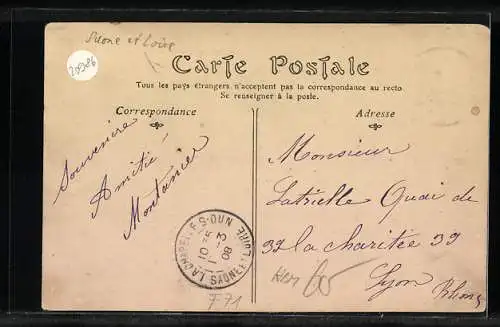 Saone et Loire
20986
Carte Postale
Tous les pays étrangers n'acceptent pas la correspondance au recto
Se renseigner à la poste.
Correspondance
Adresse
Souvenire
Amitié
Montanier
Monsieur
Latrielle Quai de
39 la charitee 39
Lyon Rhône
LA CHAPELLE-S-DUN
10
1-3
08
SAONE ET LOIRE
F71